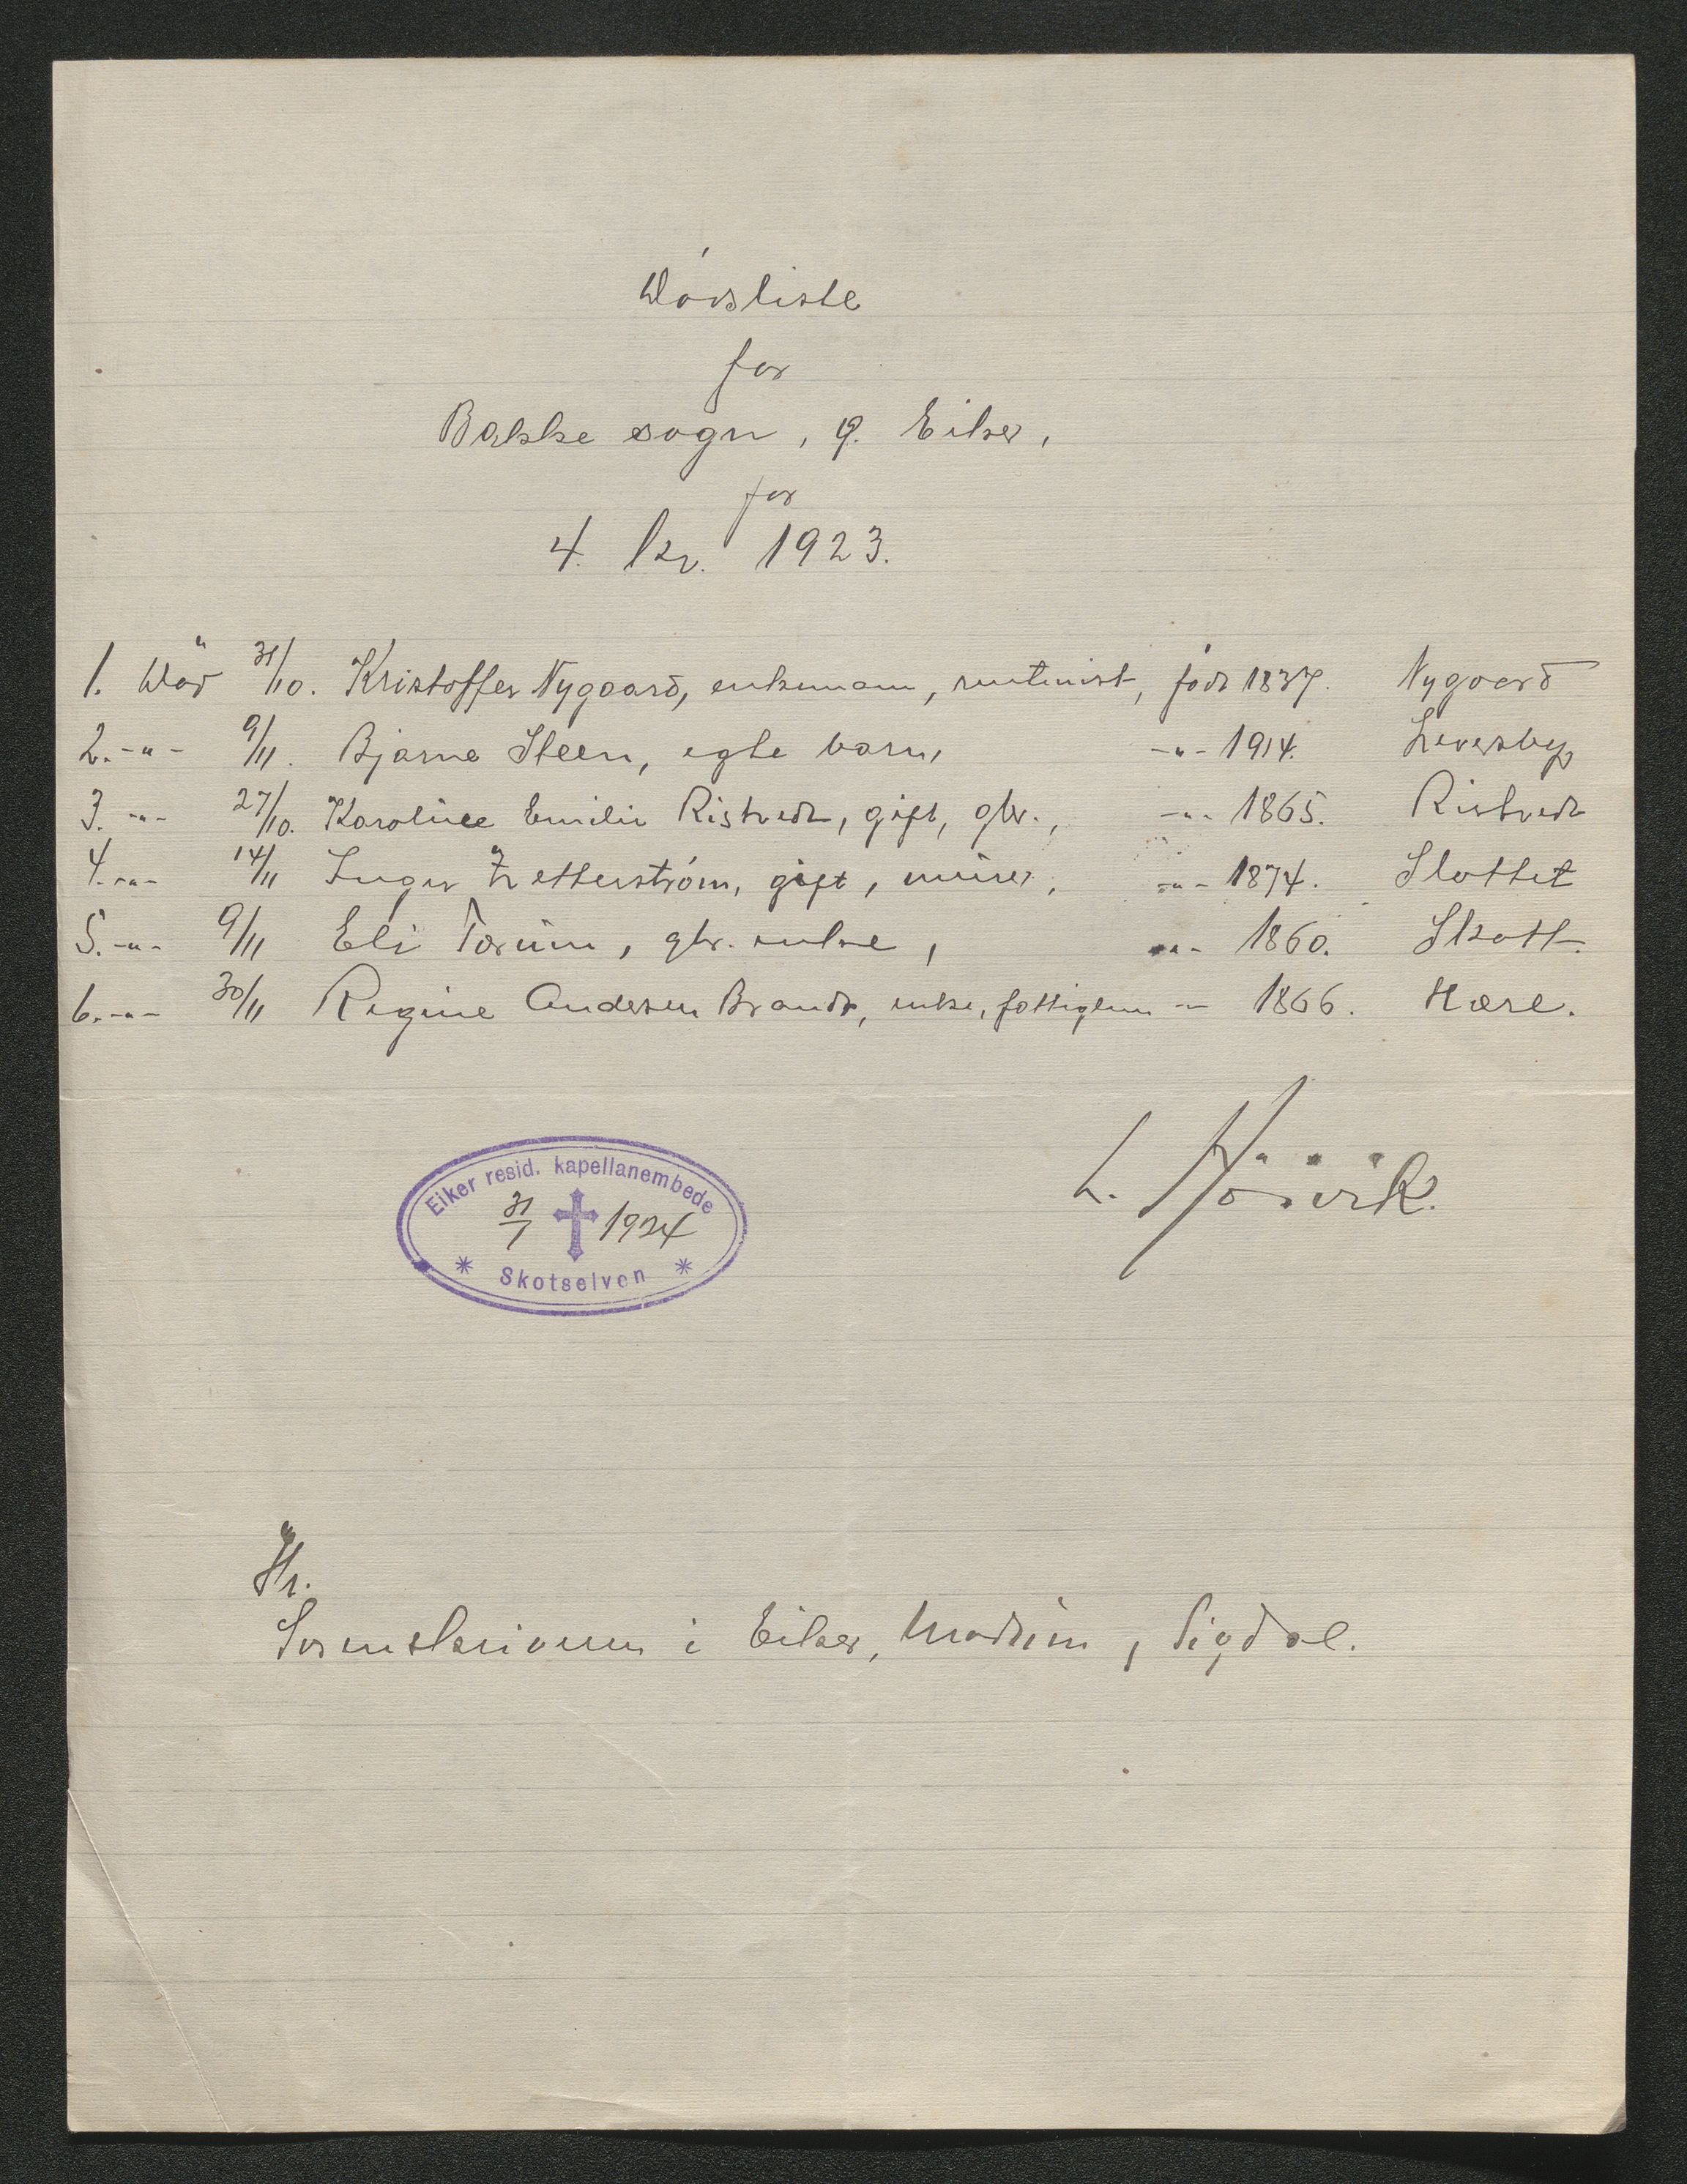 Dödsliste
for
Bakke sogn, Ø. Eiker,
for
4. kv. 1923.
1. Död 31/10. Kristoffer Nygaard, enkemann, rentenist, född 1837. Nygaard
2. -"- 9/11. Bjarne Steen, egte barn, -"- 1914. Leversby
3. -"- 27/10. Karoline Emilie Ristvedt, gift, gbr., -"- 1865. Ristvedt
4. -"- 14/11 Inger Zetterström, gift, murer, -"- 1874. Slottet
5. -"- 9/11 Eli Torum, gbr. enke, -"- 1860. Skott.
6. -"- 30/11 Regine Andersen Brandt, enke, fattiglem -"- 1866. Hære.
L. Höivik.
Eiker resid. kapellanembede
31/1 1924
Skotselven
Hr.
Sorenskriveren i Eiker, Modum, Sigdal.